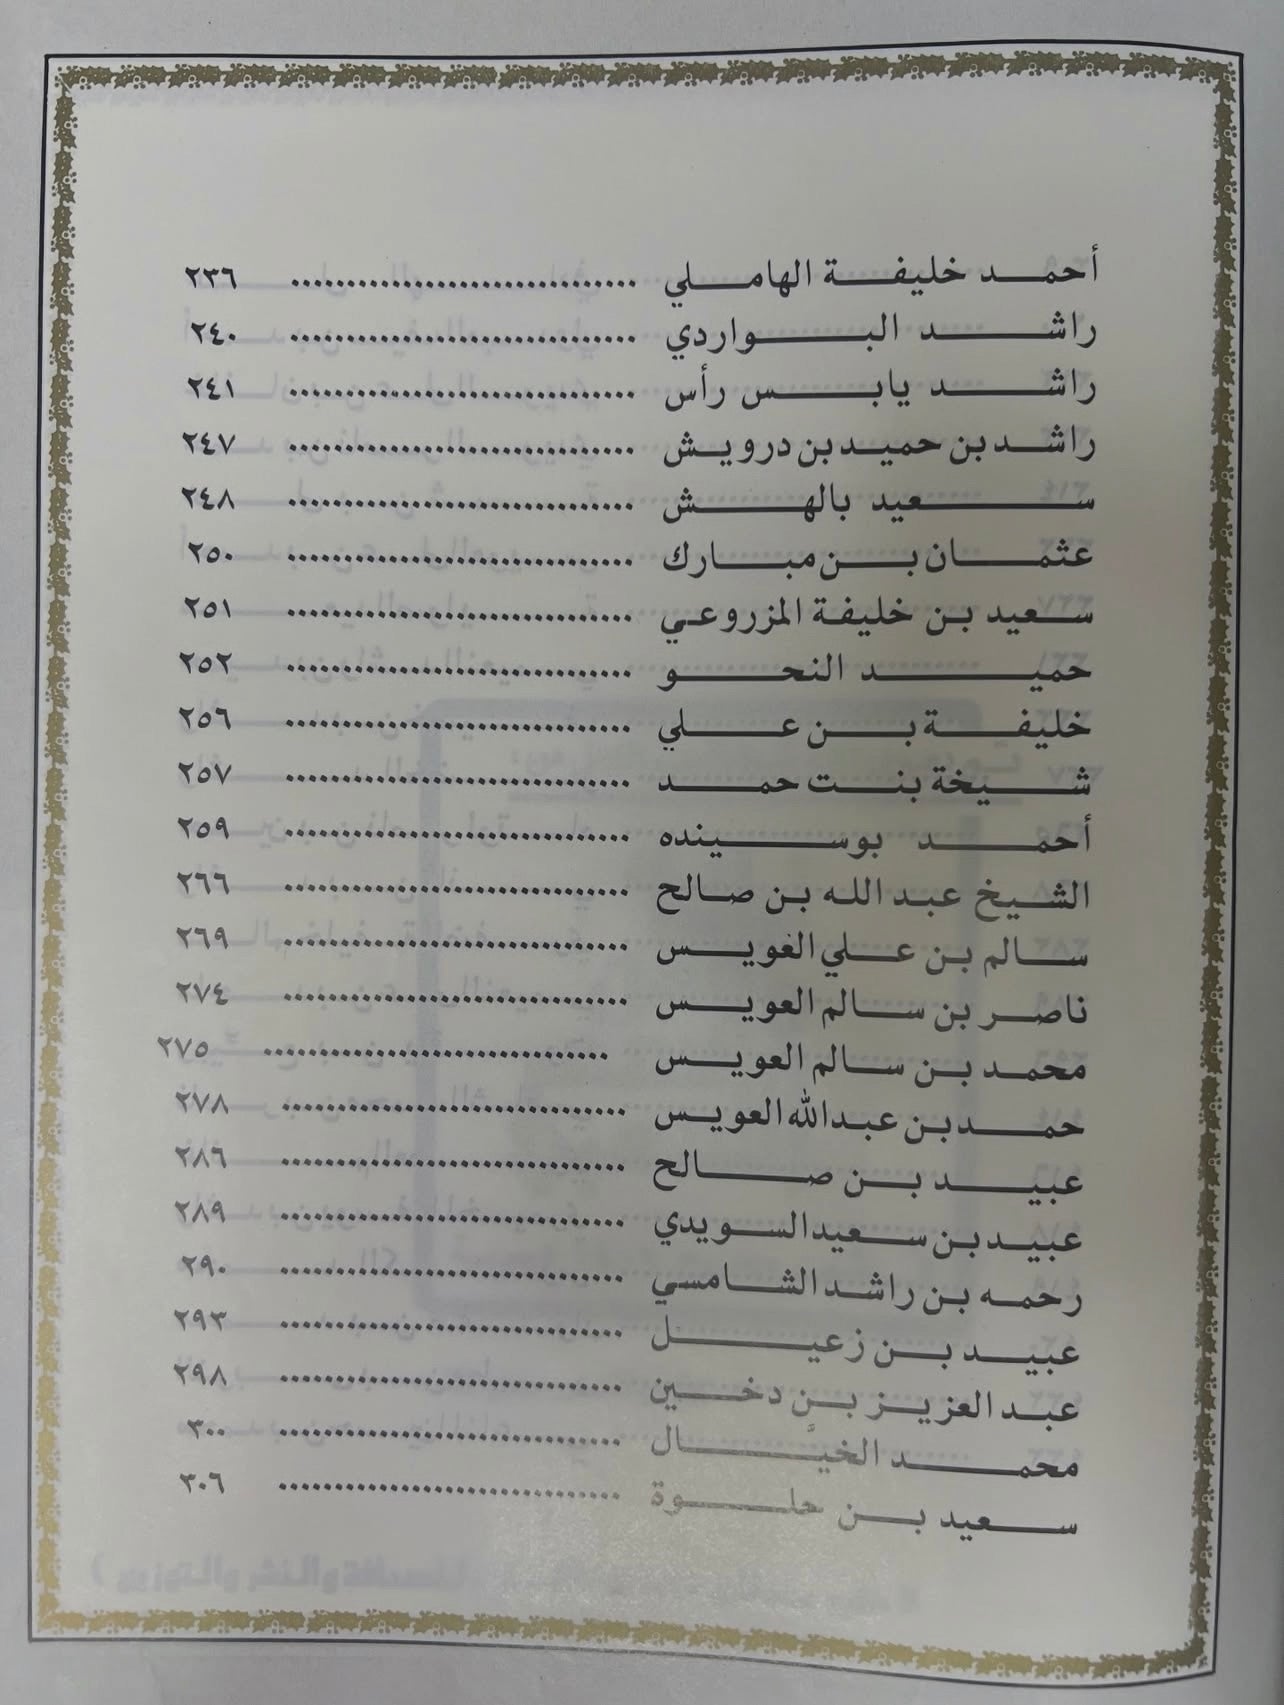 أحمد خليفة الهاملي ................................ ٢٣٦
راشد البواردي ................................ ٢٤٠
راشد يابس رأس ................................ ٢٤١
راشد بن حميد بن درويش ................................ ٢٤٧
سعيد بالهش ................................ ٢٤٨
عثمان بن مبارك ................................ ٢٥٠
سعيد بن خليفة المزروعي ................................ ٢٥١
حميد النحو ................................ ٢٥٢
خليفة بن علي ................................ ٢٥٦
شيخة بنت حمد ................................ ٢٥٧
أحمد بوسينده ................................ ٢٥٩
الشيخ عبد الله بن صالح ................................ ٢٦٦
سالم بن علي العويس ................................ ٢٦٩
ناصر بن سالم العويس ................................ ٢٧٤
محمد بن سالم العويس ................................ ٢٧٥
حمد بن عبدالله العويس ................................ ٢٧٨
عبيد بن صالح ................................ ٢٨٦
عبيد بن سعيد السويدي ................................ ٢٨٩
رحمه بن راشد الشامسي ................................ ٢٩٠
عبيد بن زعيل ................................ ٢٩٣
عبد العزيز بن دخين ................................ ٢٩٨
محمد الخيَّال ................................ ٣٠٠
سعيد بن حلوة ................................ ٣٠٦